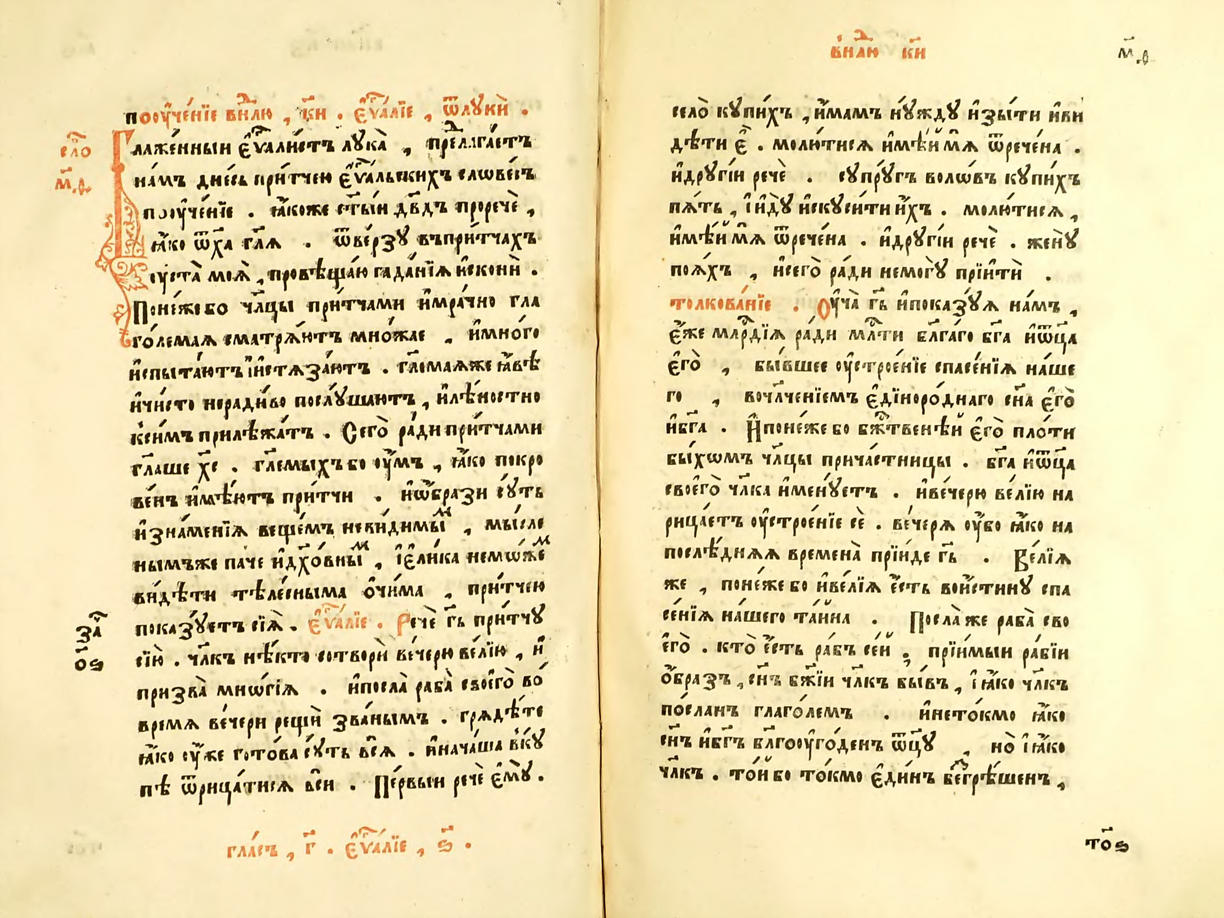 пооуче́нїе внⷣлю , к҃и . є҆ѵⷢ҇а́лїе , ѿлꙋкѝ .
сло́
м҃в
Блаже́нныи є҆ѵⷢ҇али́стъ лꙋка̀ , предлага́етъ
на́мъ дне́сь при́тчею є҆ѵⷢ҇а́льскихъ слове́съ
пооуче́нїе . ꙗ҆́коже ст҃ы́и дв҃дъ проречѐ ,
ꙗ҆́ко ѿх҃а гл҃ѧ . ѿве́рзꙋ въпри́тчахъ
оуста̀ моѧ̀ , провѣща́ю гада́нїѧ и҆сконѝ .
Поне́жебо чл҃цы при́тчами и҆мра́чно гла
го́лемаѧ сматрѧ́ютъ мно́жае , и҆мно́го
и҆спыта́ютъ и҆и҆стѧза́ютъ . гл҃емаѧже ꙗ҆́вѣ
и҆чи́сто неради́во послꙋ́шаютъ , и҆лѣ́ностно
ксимъ прилѣжа́тъ . Сего̀ ра́ди при́тчами
гл҃аше хс҃ . гл҃емыхъ бо оу҆́мъ , ꙗ҆́ко покро
ве́нъ и҆мѣ́ютъ при́тчи . и҆ѡ҆́брази сꙋ́ть
и҆зна́менїѧ веще́мъ неви́димыⷨ , мы́сле
нымъже па́че и҆дх҃о́вныⷨ , і҆є҆ли́ка немо́жеⷨ
ви́дѣти тѣле́сныма о҆чи́ма , при́тчею
показꙋ́етъ сїѧ̀ . є҆ѵⷢ҇а́лїе . Речѐ гь҃ при́тчꙋ
за҃
о҃ѕ
сїю̀ . чл҃къ нѣ́кто сотворѝ ве́черю ве́лїю , и҆
призва̀ мно́гїѧ . и҆посла̀ раба̀ своего̀ во
вре́мѧ ве́чери рещѝ зва́нымъ . грѧдѣ́те
ꙗ҆́ко оу҆же гото́ва сꙋ́ть всѧ̀ . и҆нача́ша вкꙋ́
пѣ ѿрица́тисѧ всѝ . Пе́рвыи речѐ є҆мꙋ̀ .
гла́съ , г҃ . є҆ѵⷢ҇а́лїе , ѕ҃ .
внⷣлю к҃и
м҃в
село̀ кꙋпи́хъ , и҆́мамъ нꙋ́ждꙋ и҆зы́ти и҆ви
дѣти є҆̀ . молю́тисѧ и҆мѣ́и мѧ ѿрече́на .
и҆дрꙋгі́и речѐ . сꙋпрꙋ́гъ воло́въ кꙋпи́хъ
пѧ́ть , і҆идꙋ̀ и҆скꙋси́ти и҆́хъ . молю́тисѧ ,
и҆мѣ́и мѧ ѿрече́на . и҆дрꙋгі́и речѐ . женꙋ̀
поѧ́хъ , и҆сего̀ ра́ди немогꙋ̀ прїитѝ .
толкова́нїе . Оуча̀ гь҃ и҆показꙋ́ѧ на́мъ ,
є҆́же млⷭ҇рдїѧ ра́ди млⷭ҇ти бл҃га́го бг҃а и҆ѿц҃а
є҆го̀ , бы́вшее оу҆строе́нїе спасе́нїѧ на́ше
го , вочл҃че́нїемъ є҆дїноро́днаго сн҃а є҆го̀
и҆бг҃а . И҆поне́же бо бжⷭ҇твенѣ́й є҆го̀ пло́ти
бы́хомъ чл҃цы прича́стницы . бг҃а и҆ѿц҃а
своего̀ чл҃ка и҆менꙋ́етъ . и҆ве́черю ве́лїю на
рица́етъ оу҆строе́нїе сѐ . ве́черѧ оу҆́бо ꙗ҆́ко на
послѣ́днѧѧ времена̀ прїи́де гь҃ . Ве́лїѧ
же , поне́же бо и҆ве́лїѧ є҆́сть вои́стинꙋ спа
се́нїѧ на́шего та́ина . Посла́ же раба̀ сво
є҆го̀ . кто̀ є҆́сть ра́бъ се́й , прїи́мыи ра́бїи
о҆́бразъ , сн҃ъ бж҃їи чл҃къ бы́въ , і҆ ꙗ҆́ко чл҃къ
по́сланъ глаго́лемъ . и҆нето́кмо ꙗ҆́ко
сн҃ъ и҆бг҃ъ бл҃гооу҆го́денъ ѿц҃ꙋ̀ , но і҆ ꙗ҆́ко
чл҃къ . то́и бо то́кмо є҆ди́нъ безгрѣ́шенъ ,
то҃ѕ